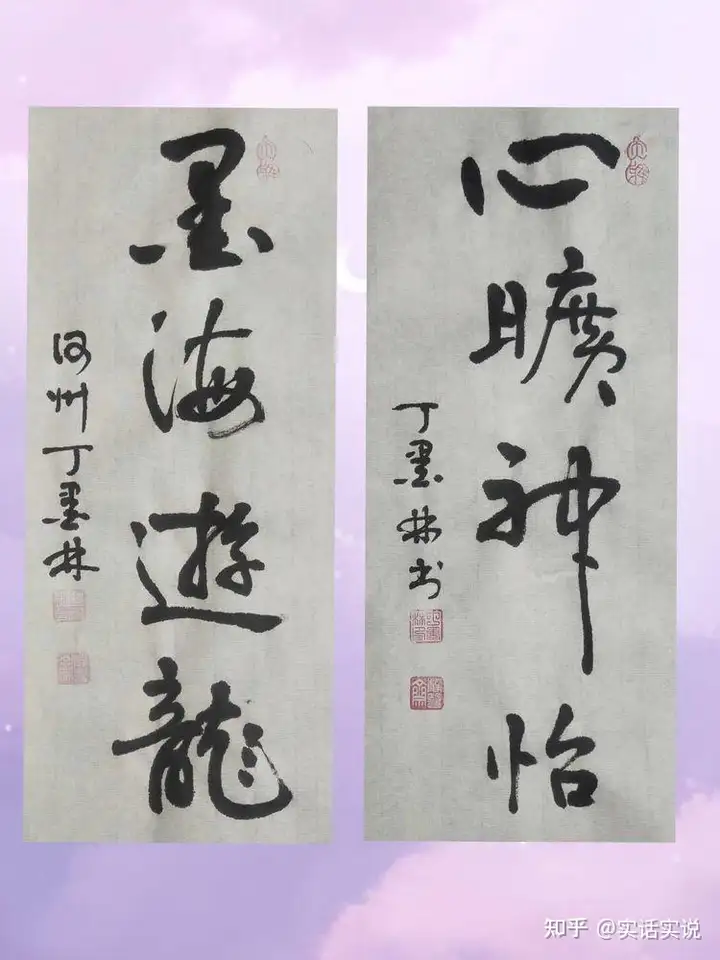 心曠神怡
丁墨林书
墨海遊龍
河州丁墨林
知乎 @实话实说